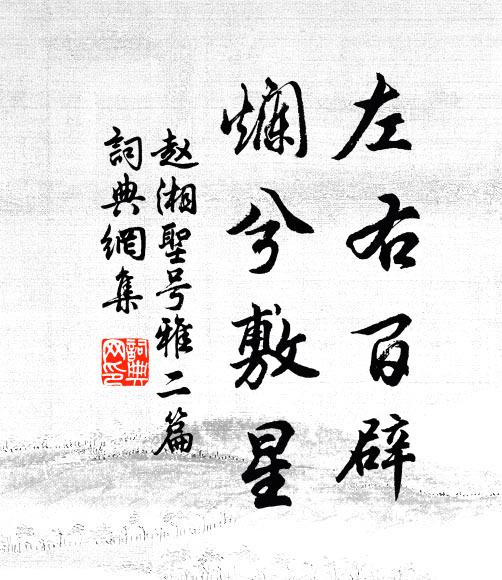 左右百辟
爛兮敷星
赵湘聖号雅二篇
詞典網集
詞典
网印